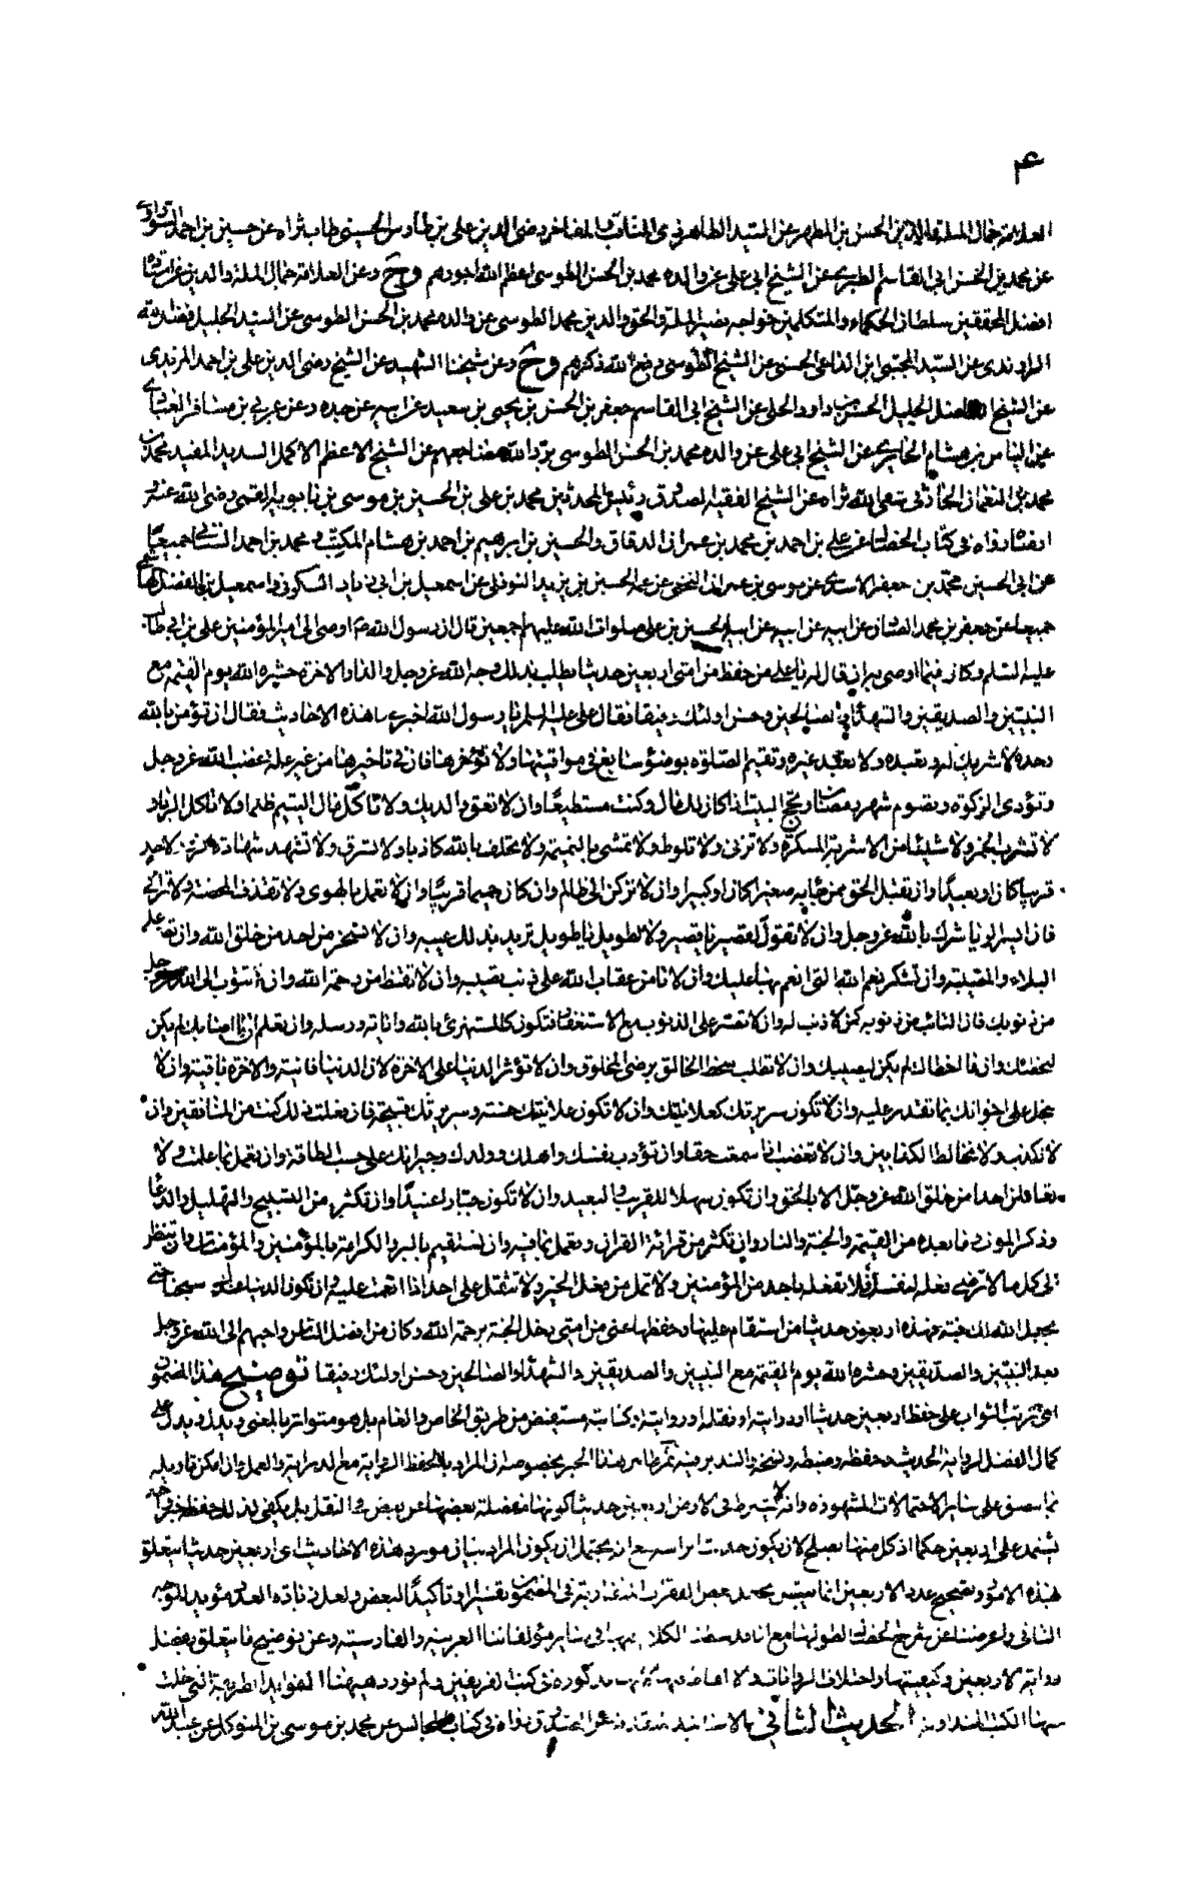 ۴
العلامة جمال الملة والدين الحسن بن المطهر عن السيد الطاهر ذى المناقب والمفاخر رضى الدين على بن طاوس الحسينى طاب ثراه عن حسين بن احمد السوراوى
عن محمد بن الحسن ابى القاسم الطبرى عن الشيخ ابى على عن والده محمد بن الحسن الطوسى اعظم الله اجورهم وح وعن العلامة جمال الملة والدين عن
افضل المحققين سلطان الحكماء والمتكلمين خواجه نصير الملة والحق والدين محمد الطوسى عن والده محمد بن الحسن الطوسى عن السيد الجليل فضل الله
الراوندى عن السيد المجتبى ابن الداعى الحسنى عن الشيخ الطوسى رفع الله ذكرهم وح وعن شيخنا الشهيد عن الشيخ رضى الدين على بن احمد المزيدى
عن الشيخ الجليل الحسن بن داود الحلى عن الشيخ ابى القاسم جعفر بن الحسن بن يحيى بن سعيد عن ابيه عن جده وعن عربى بن مسافر العبادى
عن الياس بن هشام الحايرى عن الشيخ ابى على عن والده محمد بن الحسن الطوسى برد الله مضاجعهم عن الشيخ الاعظم الاكمل السديد المفيد محمد بن
محمد بن النعمان الحارثى سقى الله ثراه عن الشيخ الفقيه الصدوق رئيس المحدثين محمد بن على بن الحسين بن موسى بن بابويه القمى رضى الله عنه
رواه فى كتاب الخصال عن على بن احمد بن محمد بن عمران الدقاق والحسين بن ابرهيم بن احمد بن هشام المكتب ومحمد بن احمد السنانى جميعا
عن ابى الحسين محمد بن جعفر الاسدى عن موسى بن عمران النخعى عن عمه الحسين بن يزيد النوفلى عن اسمعيل بن ابى زياد السكونى واسمعيل بن الفضل الهاشمى
جميعا عن جعفر بن محمد الصادق عن ابيه عن ابيه عن ابيه الحسين بن على صلوات الله عليهم اجمعين قال ان رسول الله ص اوصى الى امير المؤمنين على بن ابى طالب
عليه السلم وكان فيما اوصى به ان قال له يا على من حفظ من امتى اربعين حديثا يطلب بذلك وجه الله عز وجل والدار الاخرة حشره الله يوم القيمة مع
النبيين والصديقين والشهداء والصالحين وحسن اولئك رفيقا فقال على عليه السلم يا رسول الله اخبرنى ما هذه الاحاديث فقال ان تؤمن بالله
وحده لا شريك له وتعبده ولا تعبد غيره وتقيم الصلوة بوضوء سابغ فى مواقيتها ولا تؤخرها فان فى تاخيرها من غير علة غضب الله عز وجل
وتؤدى الزكوة وتصوم شهر رمضان وتحج البيت اذا كان لك مال وكنت مستطيعا وان لا تعق والديك ولا تاكل مال اليتيم ظلما ولا تاكل الربا و
لا تشرب الخمر ولا شيئا من الاشربة المسكرة ولا تزنى ولا تلوط ولا تمشى بالنميمة ولا تحلف بالله كاذبا ولا تسرق ولا تشهد شهادة الزور لاحد
قريبا كان او بعيدا وان تقبل الحق ممن جاء به صغيرا كان او كبيرا وان لا تركن الى ظالم وان كان حميما قريبا وان لا تعمل بالهوى ولا تقذف المحصنة ولا ترائى
فان ايسر الريا شرك بالله عز وجل وان لا تقول لقصير يا قصير ولا لطويل يا طويل تريد بذلك عيبه وان لا تسخر من احد من خلق الله وان تصبر على
البلاء والمصيبة وان تشكر نعم الله التى انعم بها عليك وان لا تامن عقاب الله على ذنب تصيبه وان لا تقنط من رحمة الله وان تتوب الى الله عز وجل
من ذنوبك فان التائب من ذنوبه كمن لا ذنب له وان لا تصر على الذنوب مع الاستغفار فتكون كالمستهزئ بالله واياته ورسله وان تعلم ان ما اصابك لم يكن
ليخطئك وان ما اخطاك لم يكن ليصيبك وان لا تطلب سخط الخالق برضى المخلوق وان لا تؤثر الدنيا على الاخرة لان الدنيا فانية والاخرة باقية وان لا
تبخل على اخوانك بما تقدر عليه وان لا تكون سريرتك كعلانيتك وان لا تكون علانيتك حسنة وسريرتك قبيحة فان فعلت ذلك كنت من المنافقين وان
لا تكذب ولا تخالط الكذابين وان لا تغضب اذا سمعت حقا وان تؤدب نفسك واهلك وولدك وجيرانك على حسب الطاقة وان تعمل بما علمت ولا
تعاملن احدا من خلق الله عز وجل الا بالحق وان تكون سهلا للقريب والبعيد وان لا تكون جبارا عنيدا وان تكثر من التسبيح والتهليل والدعا
وذكر الموت وما بعده من القيمة والجنة والنار وان تكثر من قرائة القران وتعمل بما فيه وان تستقيم بالبر والكرامة بالمؤمنين والمؤمنات وان تنظر
الى كل ما لا ترضى فعله لنفسك فلا تفعله باحد من المؤمنين ولا تمل من فعل الخير ولا تثقل على احد اذا انعمت عليه وان تكون الدنيا عندك سجنا حتى
يجعل الله لك جنة فهذه اربعون حديثا من استقام عليها وحفظها عنى من امتى دخل الجنة برحمة الله وكان من افضل الناس واحبهم الى الله عز وجل
بعد النبيين والصديقين وحشره الله يوم القيمة مع النبيين والصديقين والشهداء والصالحين وحسن اولئك رفيقا توضيح هذا المضمون
اعنى ترتب الثواب على حفظ اربعين حديثا او روايته او نقله او كتابته مستفيض من طريق الخاص والعام بل هو متواتر بالمعنى ويدل على
كمال الفضل لرواية الحديث وحفظه وضبطه ونسخه والتدبر فيه ثم ظاهر هذا الخبر بخصوصه ان المراد بالحفظ الرعاية مع الدراية والعمل وان امكن تاويله
بما يصدق على ساير الاحتمالات المشهورة وانه لا يشترط فى الاربعين حديثا كونها منفصلة بعضها عن بعض فى النقل بل يكفى لذلك حفظ خبر واحد
يشتمل على اربعين حكما اذ كل منها يصلح لان يكون حديثا براسه مع انه يحتمل ان يكون المراد بيان مورد هذه الاحاديث اى اربعين حديثا يتعلق
بهذه الامور وتصحيح عدد الاربعين انما يتيسر بجعل بعض الفقرات المتقاربة فى المضمون تفسيرا وتاكيدا لبعض ولعل زيادة العدد مؤيد للتوجيه
الثانى واعرضنا عن شرح الخصال لطولها مع انا قد بسطنا الكلام فيها فى ساير مؤلفاتنا العربية والفارسية وعن توضيح ما يتعلق بفضل
رواية الاربعين وكيفيتها واختلاف الروايات مذكورة فى كتب الفريقين ولم نورد هيهنا الا الفوايد الطريفة التى خلت
منها الكتب المتداولة الحديث الثانى بالاسانيد المتقدمة عن الصدوق رواه فى كتاب المجالس عن محمد بن موسى بن المتوكل عن عبد الله